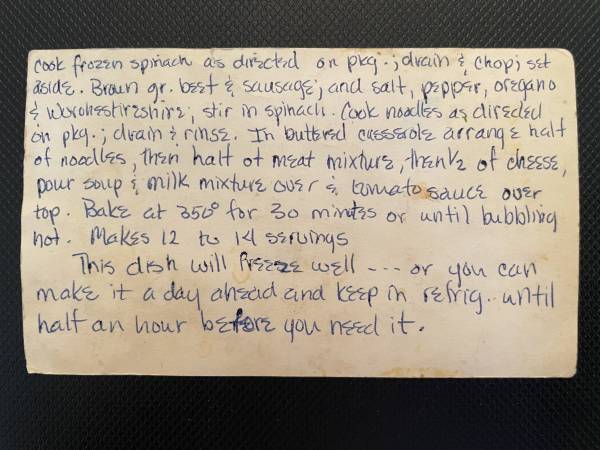 Cook frozen spinach as directed on pkg.; drain & chop; set
aside. Brown gr. beef & sausage; and salt, pepper, oregano
& Worchestireshire; stir in spinach. Cook noodles as directed
on pkg.; drain & rinse. In buttered casserole arrange half
of noodles, then half of meat mixture, then 1/2 of cheese,
pour soup & milk mixture over & tomato sauce over
top. Bake at 350° for 30 mintes or until bubbling
hot. Makes 12 to 14 servings
This dish will freeze well --- or you can
make it a day ahead and keep in refrig. until
half an hour before you need it.